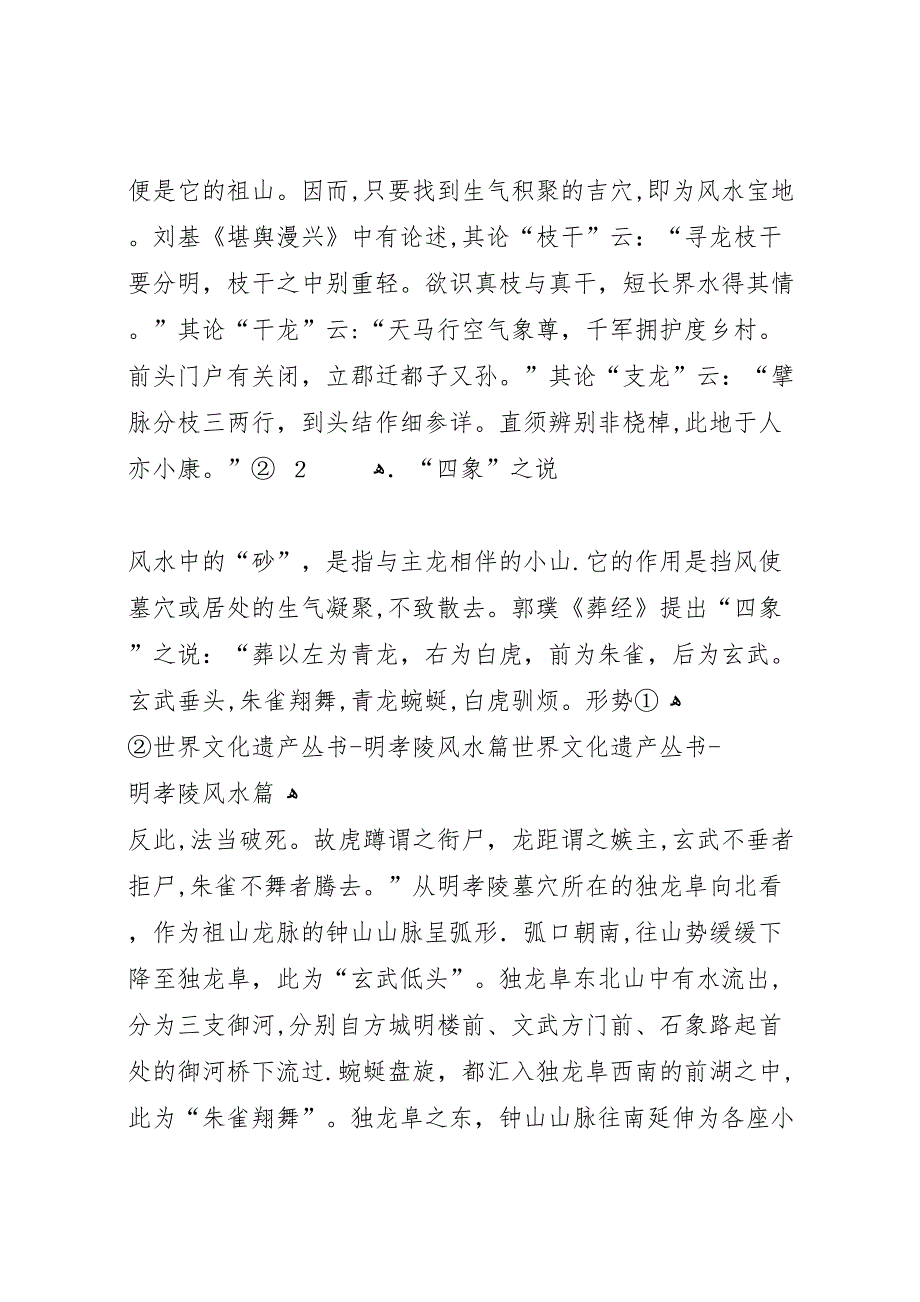 便是它的祖山。因而,只要找到生气积聚的吉穴,即为风水宝地
。刘基《堪舆漫兴》中有论述,其论“枝干”云：“寻龙枝干
要分明，枝干之中别重轻。欲识真枝与真干，短长界水得其情
。”其论“干龙”云:“天马行空气象尊，千军拥护度乡村。
前头门户有关闭，立郡迁都子又孙。”其论“支龙”云：“擘
脉分枝三两行，到头结作细参详。直须辨别非桡棹,此地于人
亦小康。”② 2 ﻫ．“四象”之说
风水中的“砂”，是指与主龙相伴的小山.它的作用是挡风使
墓穴或居处的生气凝聚,不致散去。郭璞《葬经》提出“四象
”之说：“葬以左为青龙，右为白虎，前为朱雀，后为玄武。
玄武垂头,朱雀翔舞,青龙蜿蜒,白虎驯烦。形势① ﻫ
②世界文化遗产丛书-明孝陵风水篇世界文化遗产丛书-
明孝陵风水篇 ﻫ
反此,法当破死。故虎蹲谓之衔尸，龙距谓之嫉主,玄武不垂者
拒尸,朱雀不舞者腾去。”从明孝陵墓穴所在的独龙阜向北看
，作为祖山龙脉的钟山山脉呈弧形．弧口朝南,往山势缓缓下
降至独龙阜，此为“玄武低头”。独龙阜东北山中有水流出,
分为三支御河,分别自方城明楼前、文武方门前、石象路起首
处的御河桥下流过.蜿蜒盘旋，都汇入独龙阜西南的前湖之中,
此为“朱雀翔舞”。独龙阜之东，钟山山脉往南延伸为各座小